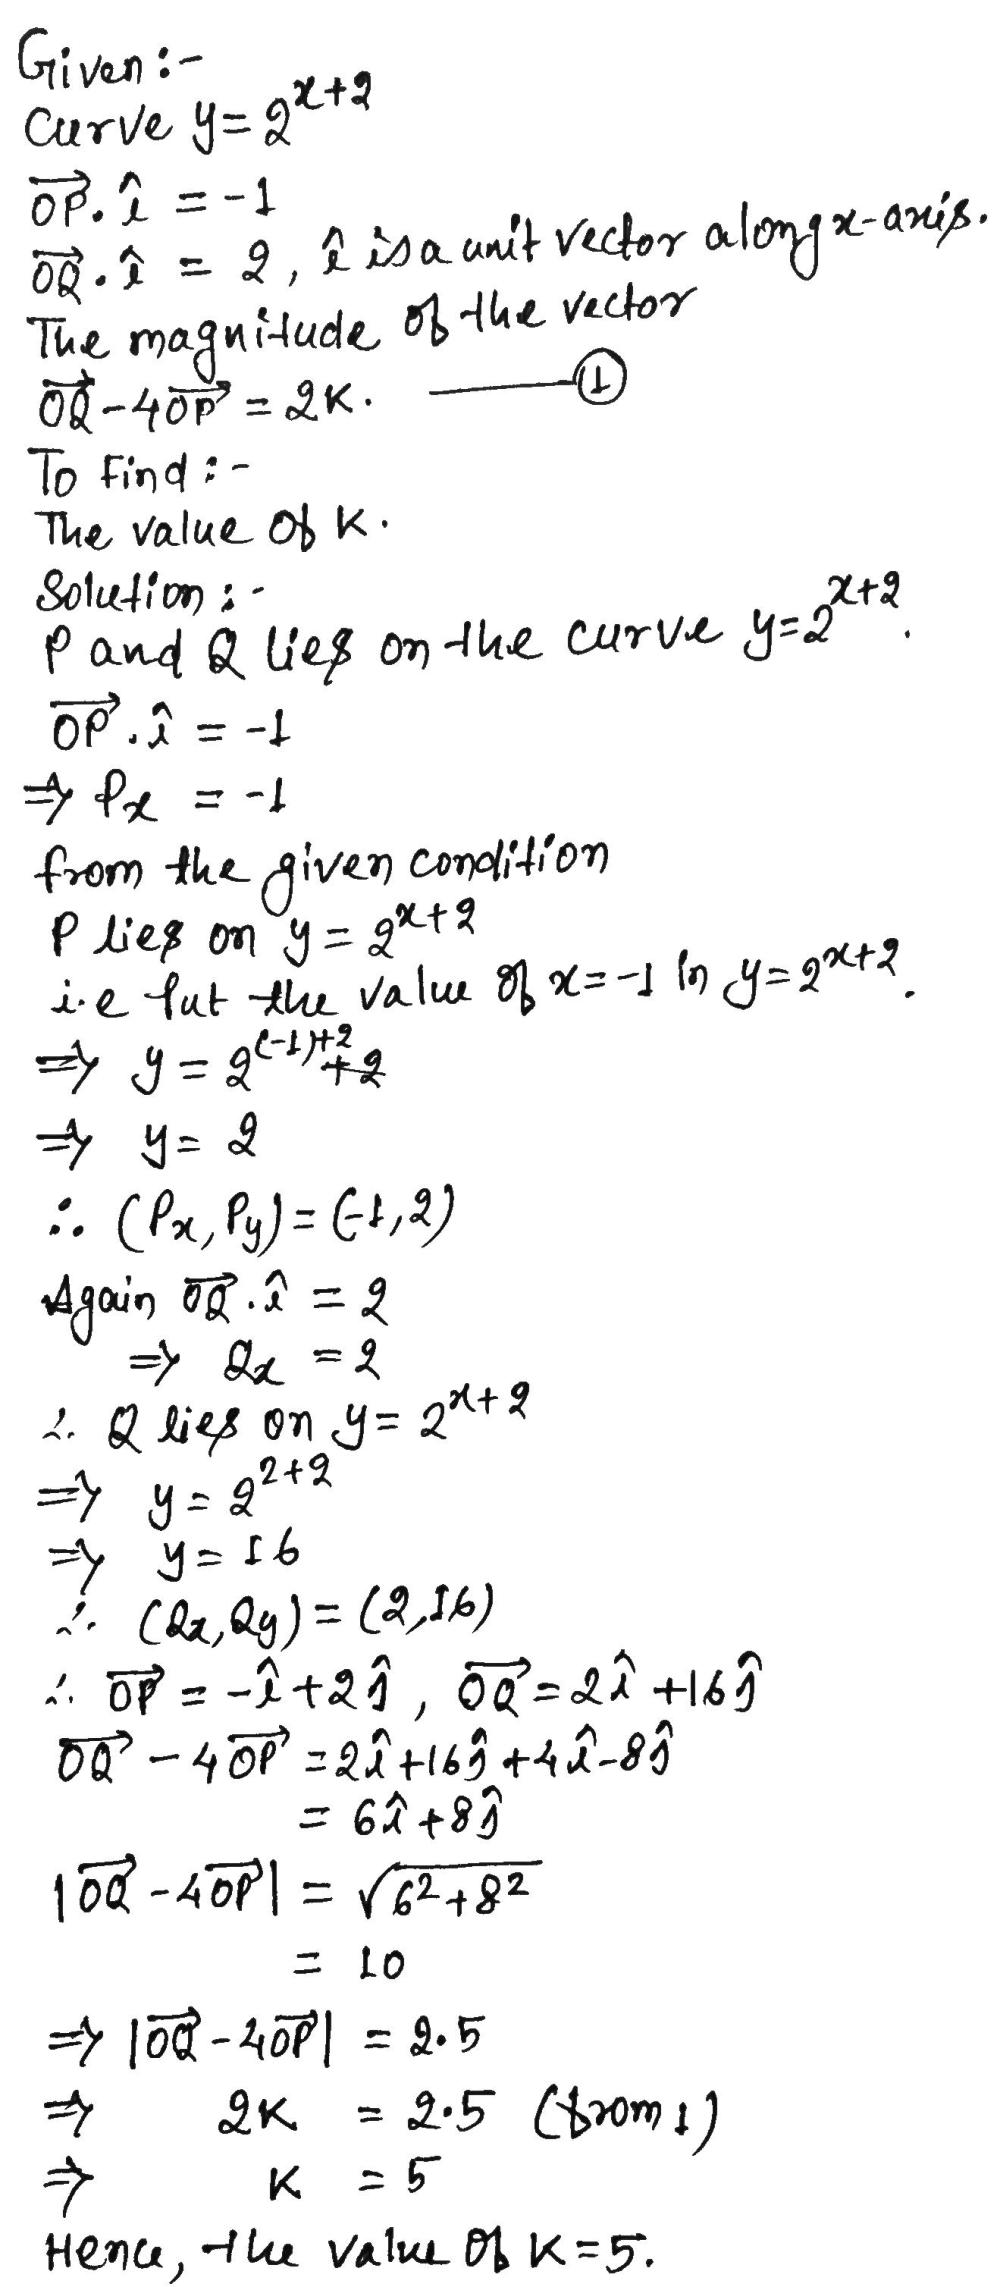 Given :-
Curve y = 2^{x+2}
\overrightarrow{OP}.\hat{i} = -1
\overrightarrow{OQ}.\hat{i} = 2, \hat{i} is a unit vector along x-axis.
The magnitude of the vector
\overrightarrow{OQ} - 4\overrightarrow{OP} = 2K. —— ①
To Find :-
The value of K.
Solution :-
P and Q lies on the curve y = 2^{x+2}.
\overrightarrow{OP}.\hat{i} = -1
⇒ Px = -1
from the given condition
P lies on y = 2^{x+2}
i.e Put the value of x = -1 in y = 2^{x+2}.
⇒ y = 2^{(-1)+2}
⇒ y = 2
∴ (Px, Py) = (-1, 2)
Again \overrightarrow{OQ}.\hat{i} = 2
⇒ Qx = 2
∴ Q lies on y = 2^{x+2}
⇒ y = 2^{2+2}
⇒ y = 16
∴ (Qx, Qy) = (2, 16)
∴ \overrightarrow{OP} = -\hat{i} + 2\hat{j}, \overrightarrow{OQ} = 2\hat{i} + 16\hat{j}
\overrightarrow{OQ} - 4\overrightarrow{OP} = 2\hat{i} + 16\hat{j} + 4\hat{i} - 8\hat{j}
= 6\hat{i} + 8\hat{j}
|\overrightarrow{OQ} - 4\overrightarrow{OP}| = √(6² + 8²)
= 10
⇒ |\overrightarrow{OQ} - 4\overrightarrow{OP}| = 2.5
⇒ 2K = 2.5 (from 1)
⇒ K = 5
Hence, the value of K = 5.